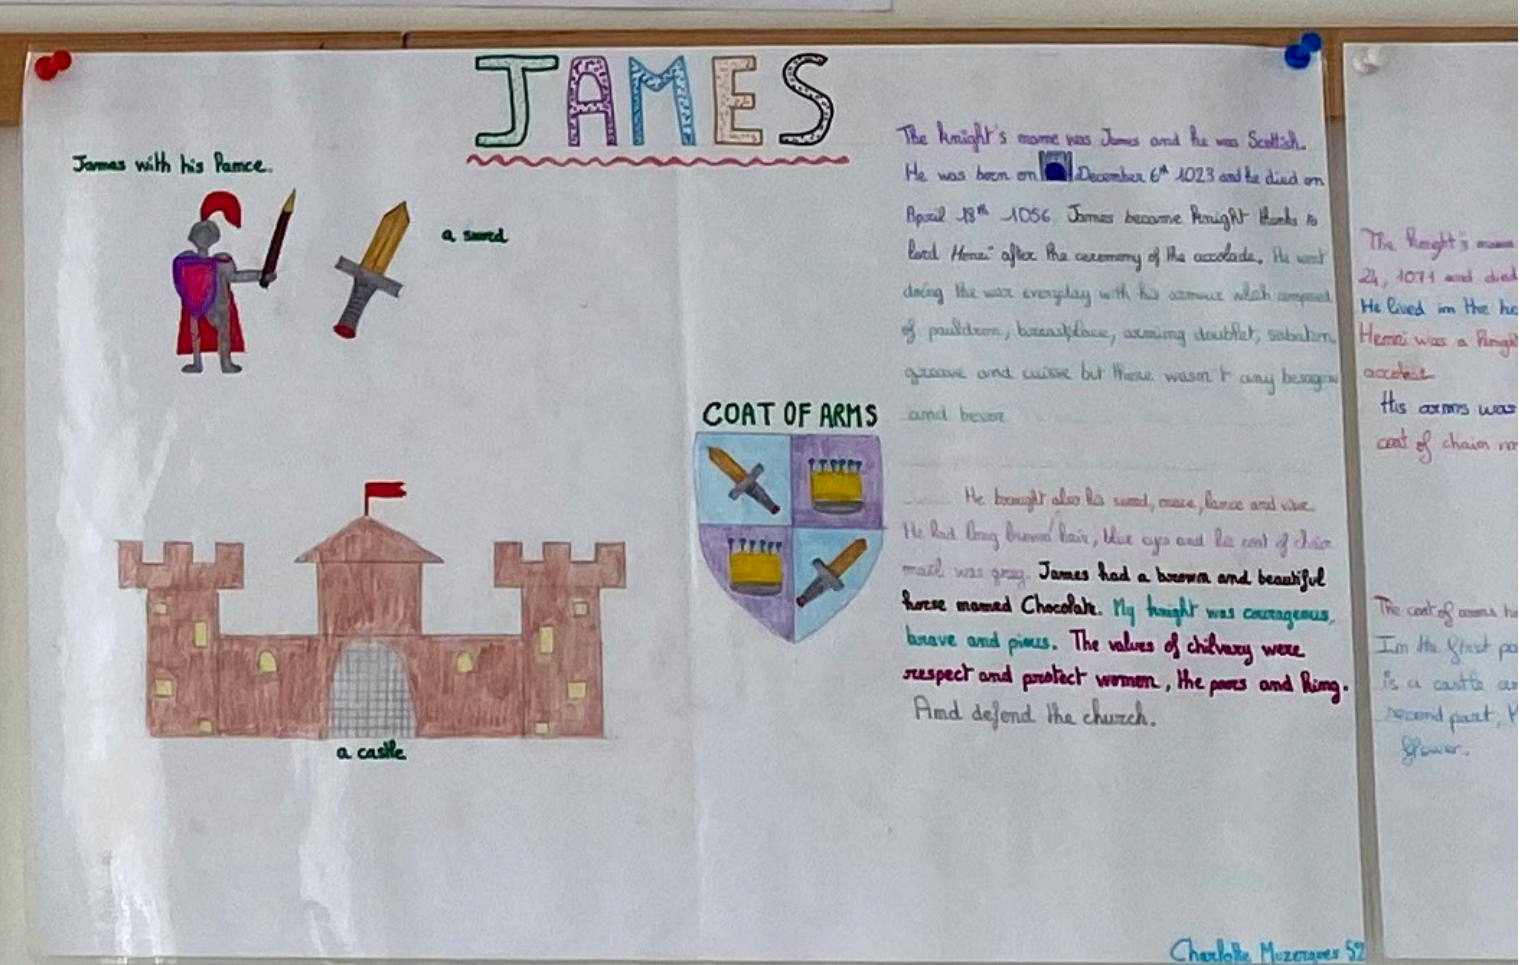 JAMES
James with his lance.
a sword
COAT OF ARMS
a castle
The knight's name was James and he was Scottish.
He was born on December 6th 1023 and he died on
April 18th 1056. James became knight thanks to
lord Henri after the ceremony of the accolade. He went
doing the war everyday with his armour which composed
of pauldron, breastplace, arming doublet, sabaton,
greave and cuisse but there wasn't any besagew
and bevor
He brought also his sword, mace, lance and
He had long brown hair, blue eyes and his coat of chain
mail was grey. James had a brown and beautiful
horse named Chocolate. My knight was courageous,
brave and pious. The values of chilvary were
respect and protect women, the poors and King.
And defend the church.
Charlotte Muzergues 52
The knight's name
24, 1071 and died
He lived in the
Henri was a knight
His arms was
coat of chain
The coat of arms
In the first
is a castle
second part,
flower.